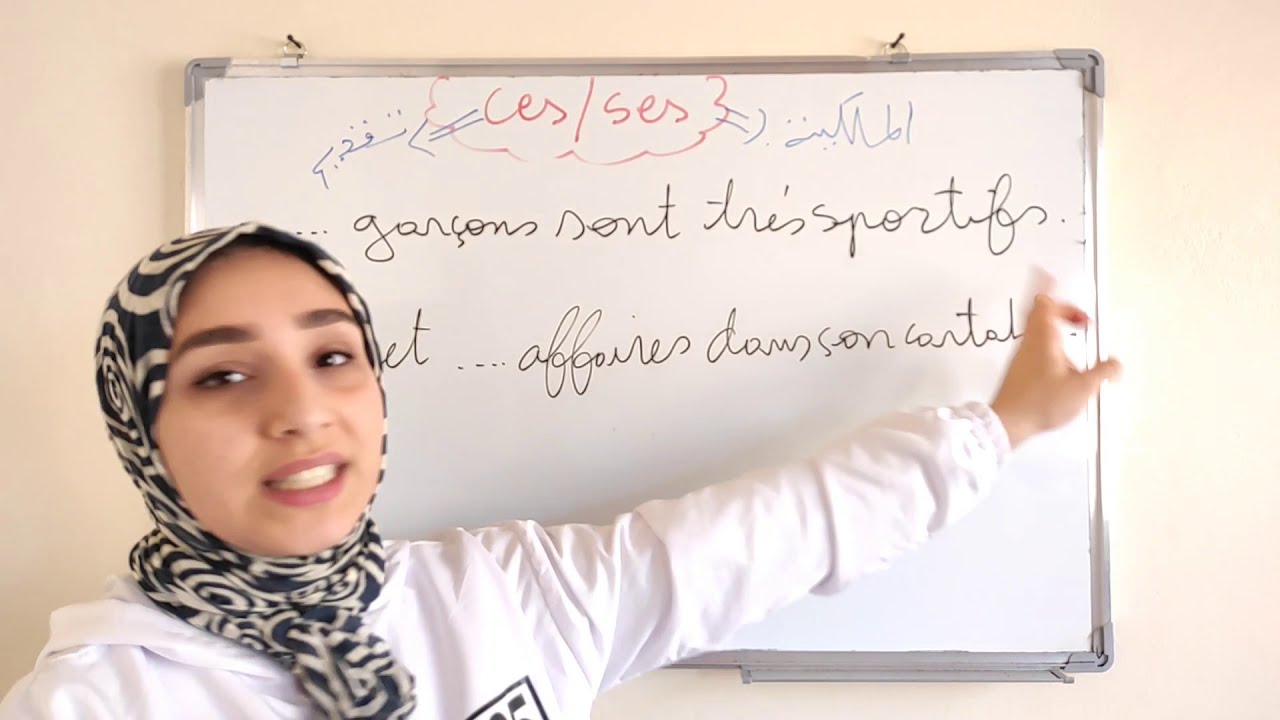 ces/ses المالكية
... garçons sont trés sportifs.
et .... affaires dans son cartab